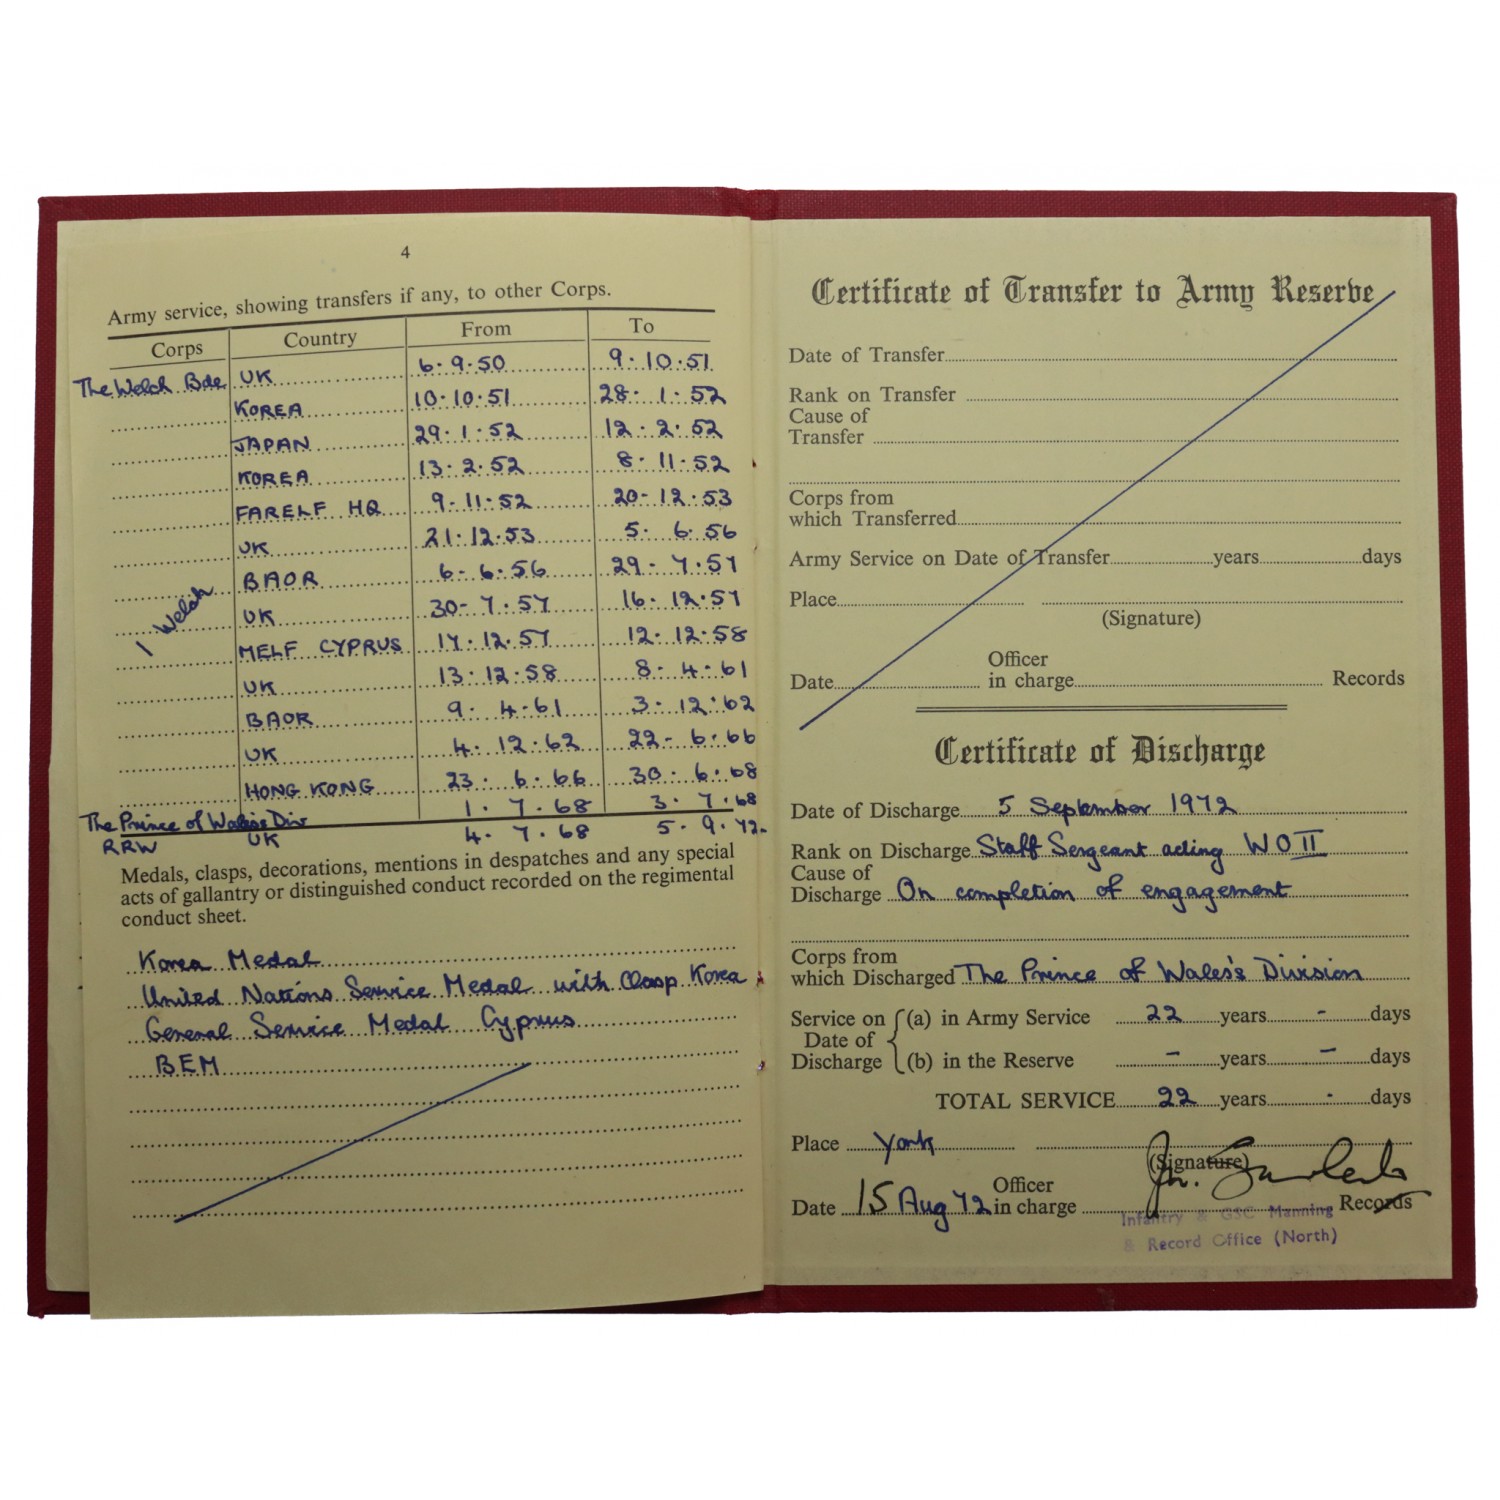 4
Army service, showing transfers if any, to other Corps.
Corps Country From To
The Welch Bde UK 6.9.50 9.10.51
KOREA 10.10.51 28.1.52
JAPAN 29.1.52 12.2.52
KOREA 13.2.52 8.11.52
FARELF HQ 9.11.52 20-12.53
UK 21.12.53 5.6.56
BAOR 6-6.56 29-7.57
1 Welch
UK 30-7.57 16-12.57
MELF CYPRUS 17.12.57 12.12.58
UK 13.12.58 8.4.61
BAOR 9.4.61 3.12.62
UK 4.12.62 22-6.66
HONG KONG 23.6.66 30.6.68
1.7.68 3.7.68
The Prince of Wales's Div
RRW UK 4.7.68 5.9.72.
Medals, clasps, decorations, mentions in despatches and any special
acts of gallantry or distinguished conduct recorded on the regimental
conduct sheet.
Korea Medal
United Nations Service Medal with Clasp Korea
General Service Medal Cyprus
BEM
Certificate of Transfer to Army Reserve
Date of Transfer
Rank on Transfer
Cause of
Transfer
Corps from
which Transferred
Army Service on Date of Transfer years days
Place
(Signature)
Officer
Date in charge Records
Certificate of Discharge
Date of Discharge 5 September 1972
Rank on Discharge Staff Sergeant acting WO II
Cause of
Discharge On completion of engagement
Corps from
which Discharged The Prince of Wales's Division
Service on (a) in Army Service 22 years - days
Date of
Discharge (b) in the Reserve - years - days
TOTAL SERVICE 22 years - days
Place York
(Signature)
Officer
Date 15 Aug 72 in charge Records
Infantry & GSC Manning
& Record Office (North)